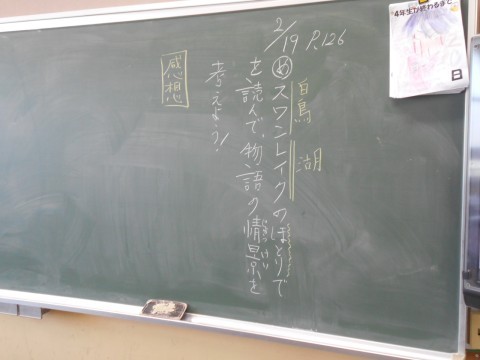 2/19 P.126
白鳥 湖
めスワンレイクのほとりで
を読んで、物語の情景を
じょうけい
考えよう！
感想
4年生が終わるまで
日